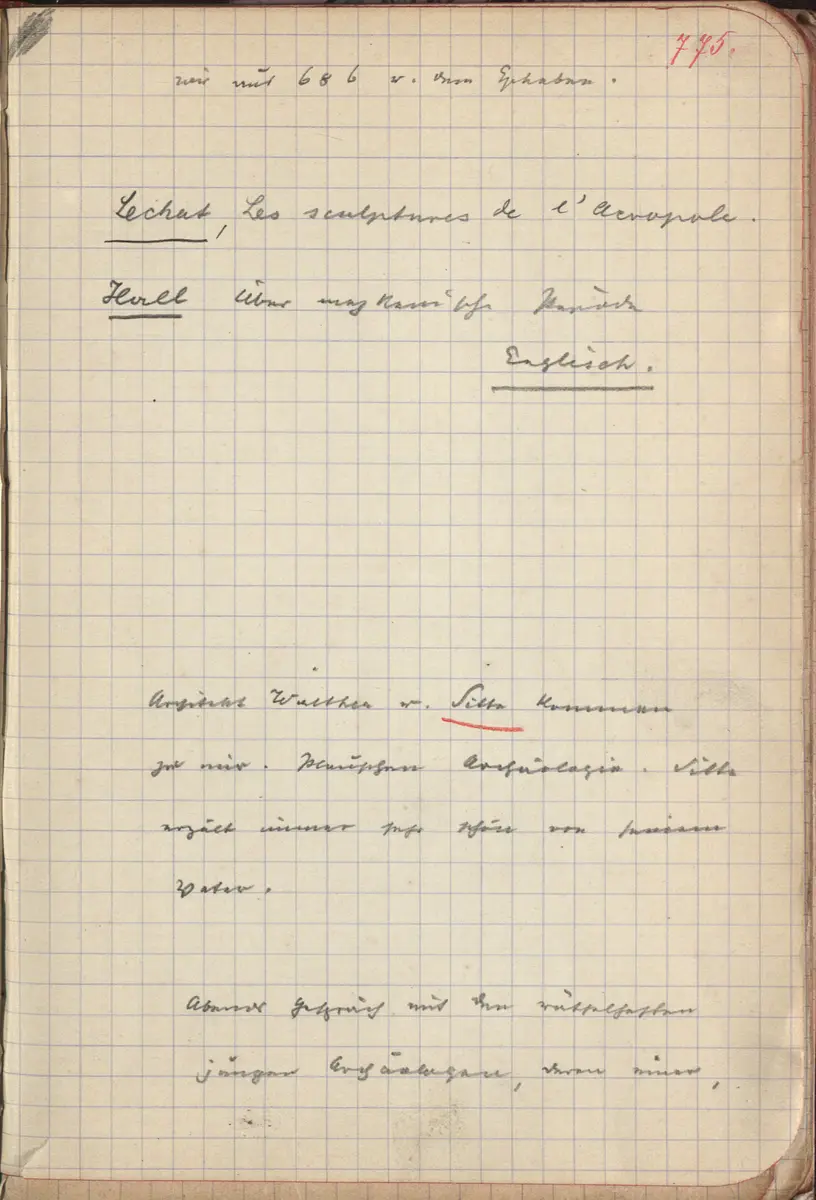 775.
wie mit 686 u. dem Epheben.
Lechat, Les sculptures de l'Acropole.
Hall über mykenische Periode
Englisch.
Architekt Walther u. Sitte kommen
zu mir. Plauschen Archäologie. Sitte
erzält immer sehr schön von seinem
Vater.
Abends Gespräch mit den rätselhaften
jungen Archäologen, deren einer,